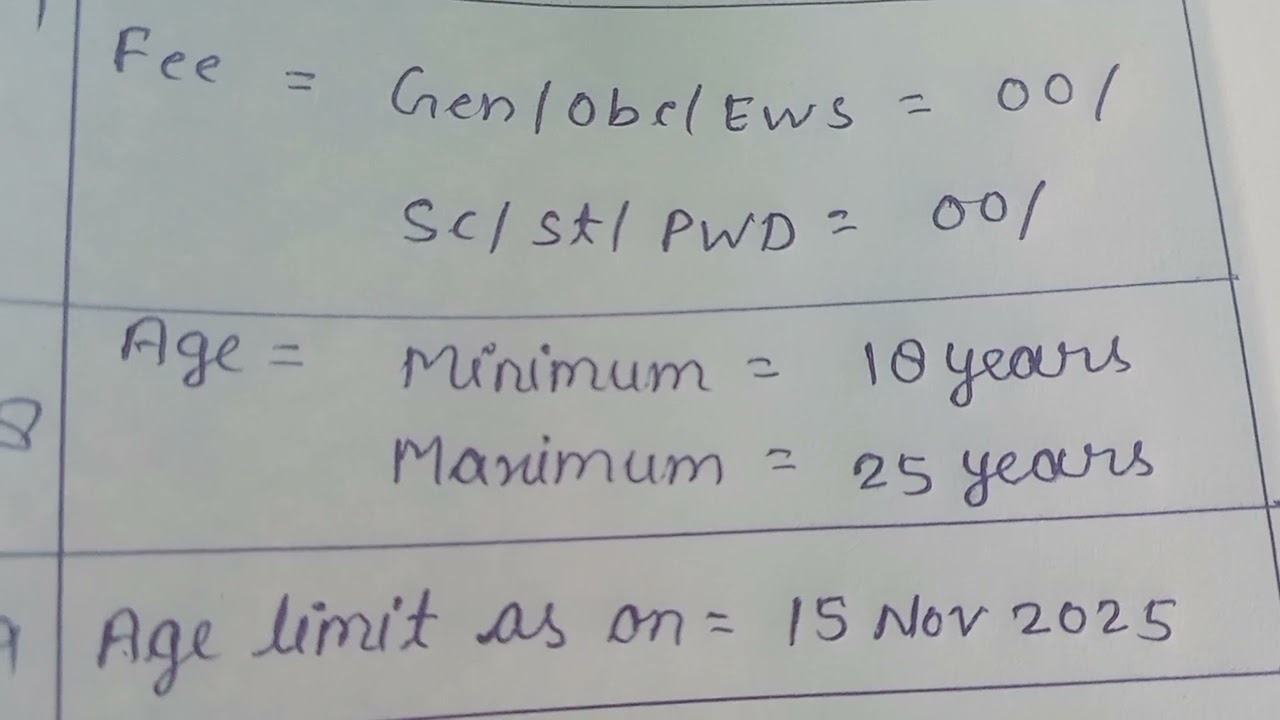 Fee = Gen/Obc/EWS = 00/
Sc/St/PWD = 00/
8 Age = Minimum = 18 years
Maximum = 25 years
9 Age limit as on = 15 Nov 2025